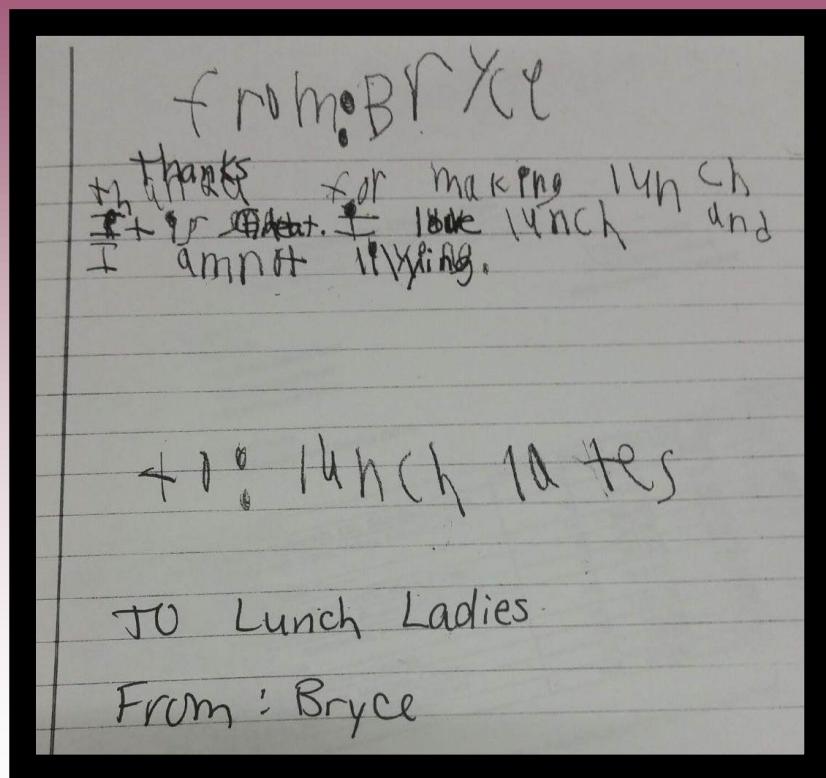 from: Bryce
thanks
for making lunch
It is Great. I love lunch and
I amnot lying.
to: lunch lates
To Lunch Ladies
From: Bryce